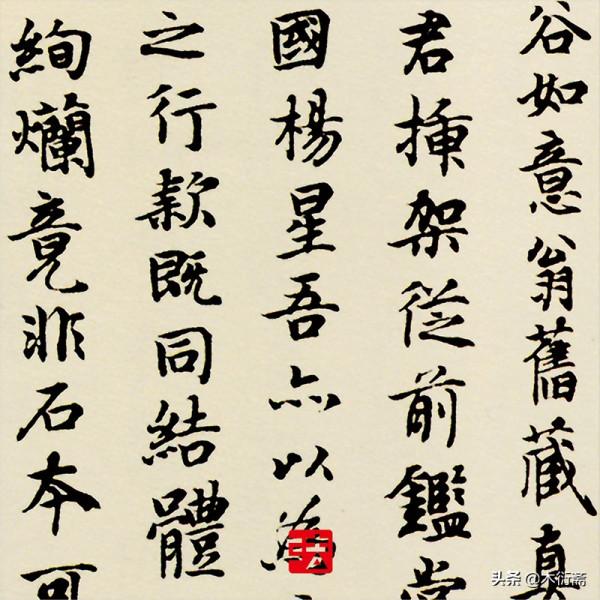 谷如意翁舊藏真
君挿架從前鑑
國楊星吾亦以為
之行款既同結體
絢爛竟非石本可
头条 @木衍斋